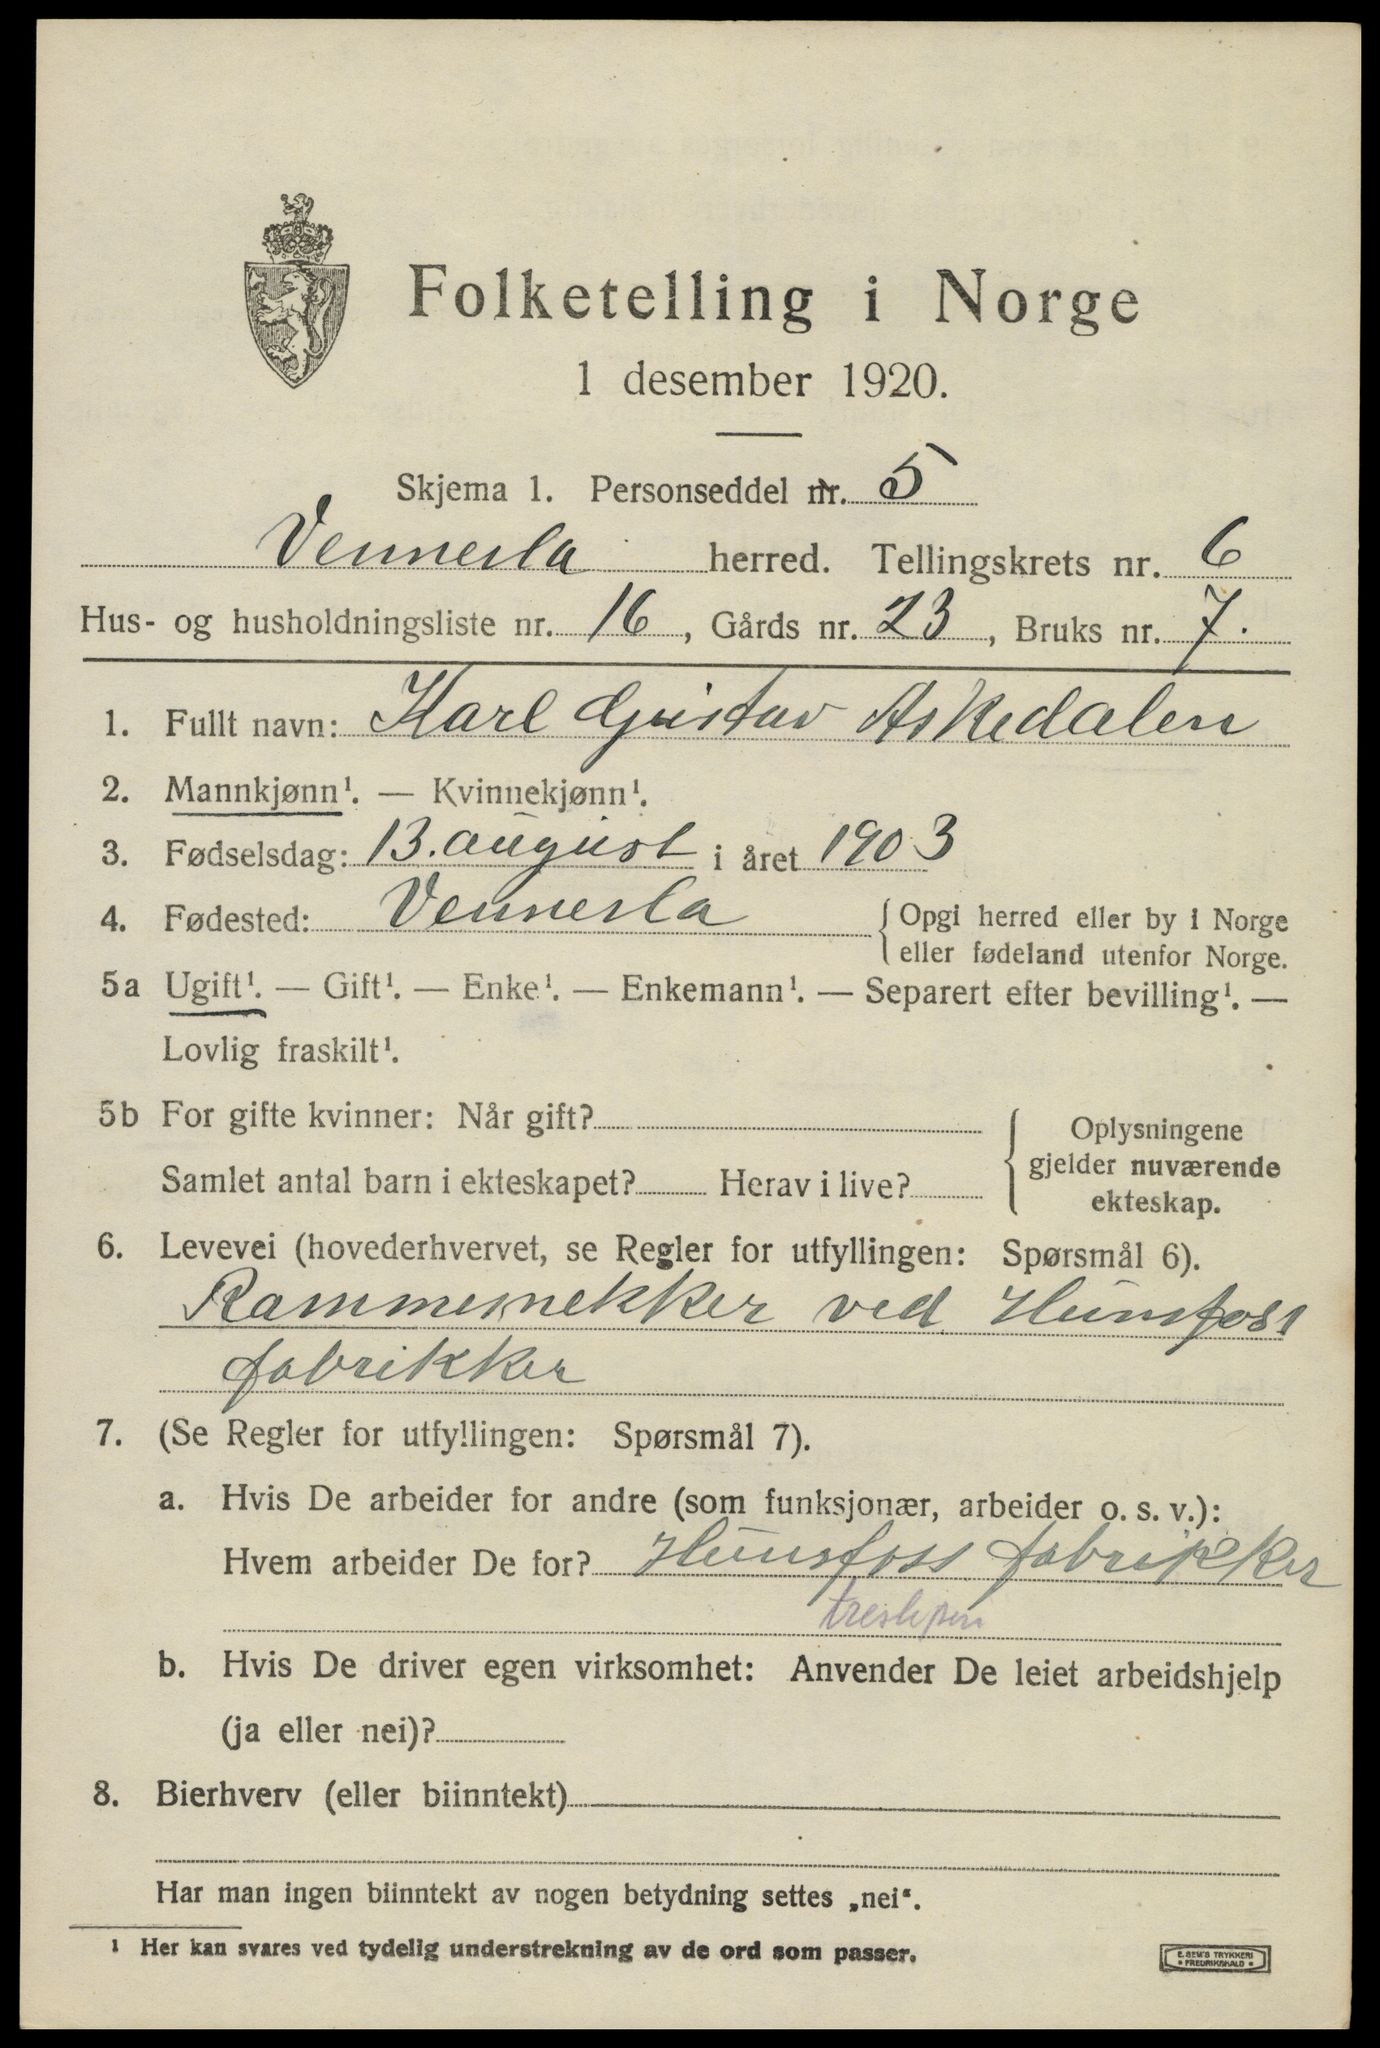 Folketelling i Norge
1 desember 1920.
Skjema 1. Personseddel nr. 5
Vennesla herred. Tellingskrets nr. 6
Hus- og husholdningsliste nr. 16, Gårds nr. 23, Bruks nr. 7.
1. Fullt navn: Karl Gustav Askedalen
2. Mannkjønn¹. — Kvinnekjønn¹.
3. Fødselsdag: 13. august i året 1903
4. Fødested: Vennesla { Opgi herred eller by i Norge
eller fødeland utenfor Norge.
5a Ugift¹. — Gift¹. — Enke¹. — Enkemann¹. — Separert efter bevilling¹. —
Lovlig fraskilt¹.
5b For gifte kvinner: Når gift?
Samlet antal barn i ekteskapet? Herav i live?
Oplysningene
gjelder nuværende
ekteskap.
6. Levevei (hovederhvervet, se Regler for utfyllingen: Spørsmål 6).
Rammesnekker ved Hunsfoss
fabrikker
7. (Se Regler for utfyllingen: Spørsmål 7).
a. Hvis De arbeider for andre (som funksjonær, arbeider o. s. v.):
Hvem arbeider De for? Hunsfoss fabrikker
b. Hvis De driver egen virksomhet: Anvender De leiet arbeidshjelp
(ja eller nei)?
8. Bierhverv (eller biinntekt)
Har man ingen biinntekt av nogen betydning settes „nei“.
¹ Her kan svares ved tydelig understrekning av de ord som passer.
E. SEM'S TRYKKERI
• FREDRIKSHALD •